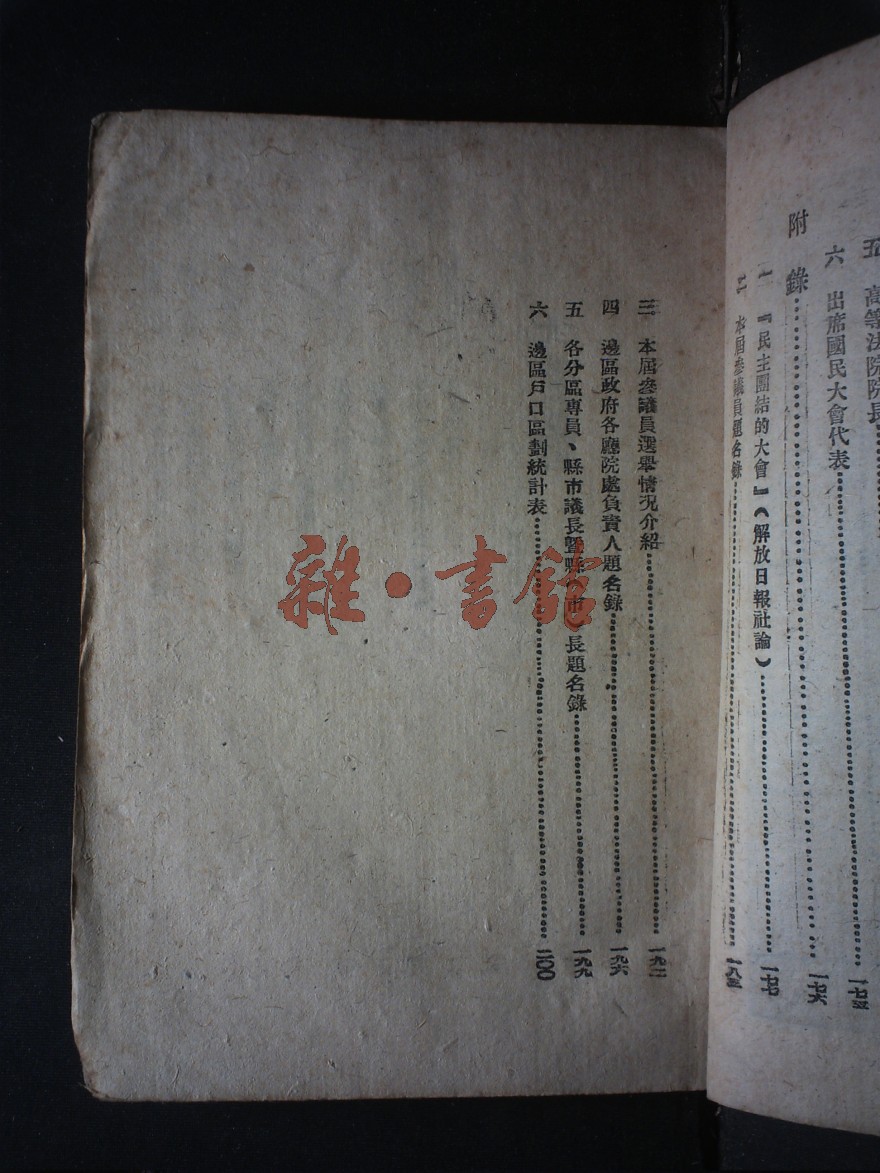 五 高等法院院長
六 出席國民大會代表 一七五
附錄 一七六
一 『民主團結的大會』(解放日報社論) 一七七
二 本屆參議員題名錄 一八三
三 本屆參議員選舉情況介紹 一九二
四 邊區政府各廳院處負責人題名錄 一九六
五 各分區專員、縣市議長暨縣(市)長題名錄 一九九
六 邊區戶口區劃統計表 二〇〇
雜·書館